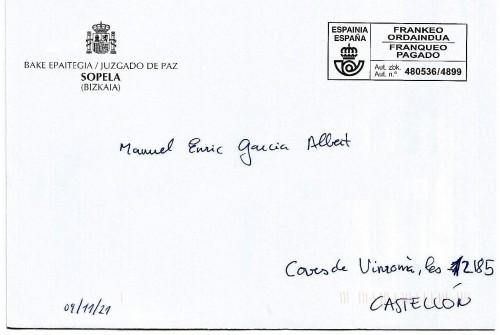 BAKE EPAITEGIA / JUZGADO DE PAZ
SOPELA
(BIZKAIA)
ESPAINIA
ESPAÑA
FRANKEO
ORDAINDUA
FRANQUEO
PAGADO
Aut. zbk.
Aut. n.º 480536/4899
Manuel Enric Garcia Albert
Coves de Vinromà, les 12185
CASTELLÓN
09/11/21